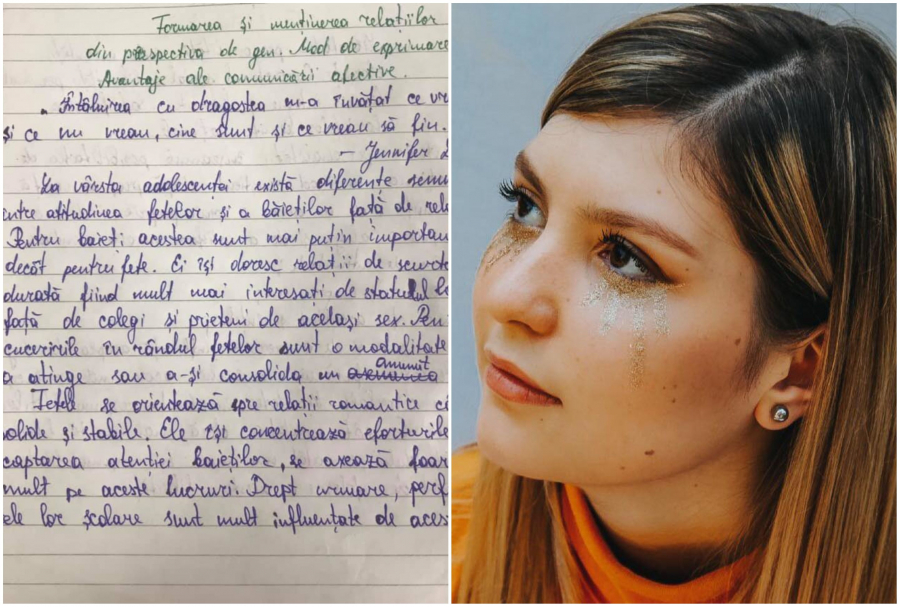 Formarea și menținerea relațiilor
din perspectiva de gen. Mod de exprimare
Avantaje ale comunicării afective.
„Întâlnirea cu dragostea m-a învățat ce vr
și ce nu vreau, cine sunt și ce vreau să fiu.
– Jennifer L
La vârsta adolescenței există diferențe semn
între atitudinea fetelor și a băieților față de rela
Pentru baieți acestea sunt mai puțin importan
decât pentru fete. Ei își doresc relații de scurtă
durată fiind mult mai interesati de statutul lo
față de colegi si prieteni de același sex. Pen
cuceririle în rândul fetelor sunt o modalitate
a atinge sau a-și consolida un anumit
Fetele se orientează spre relații romantice ci
olide și stabile. Ele își concentrează eforturile
captarea atenției baieților, se axează foar
mult pe aceste lucruri. Drept urmare, perf
ele lor școlare sunt mult influențate de aces